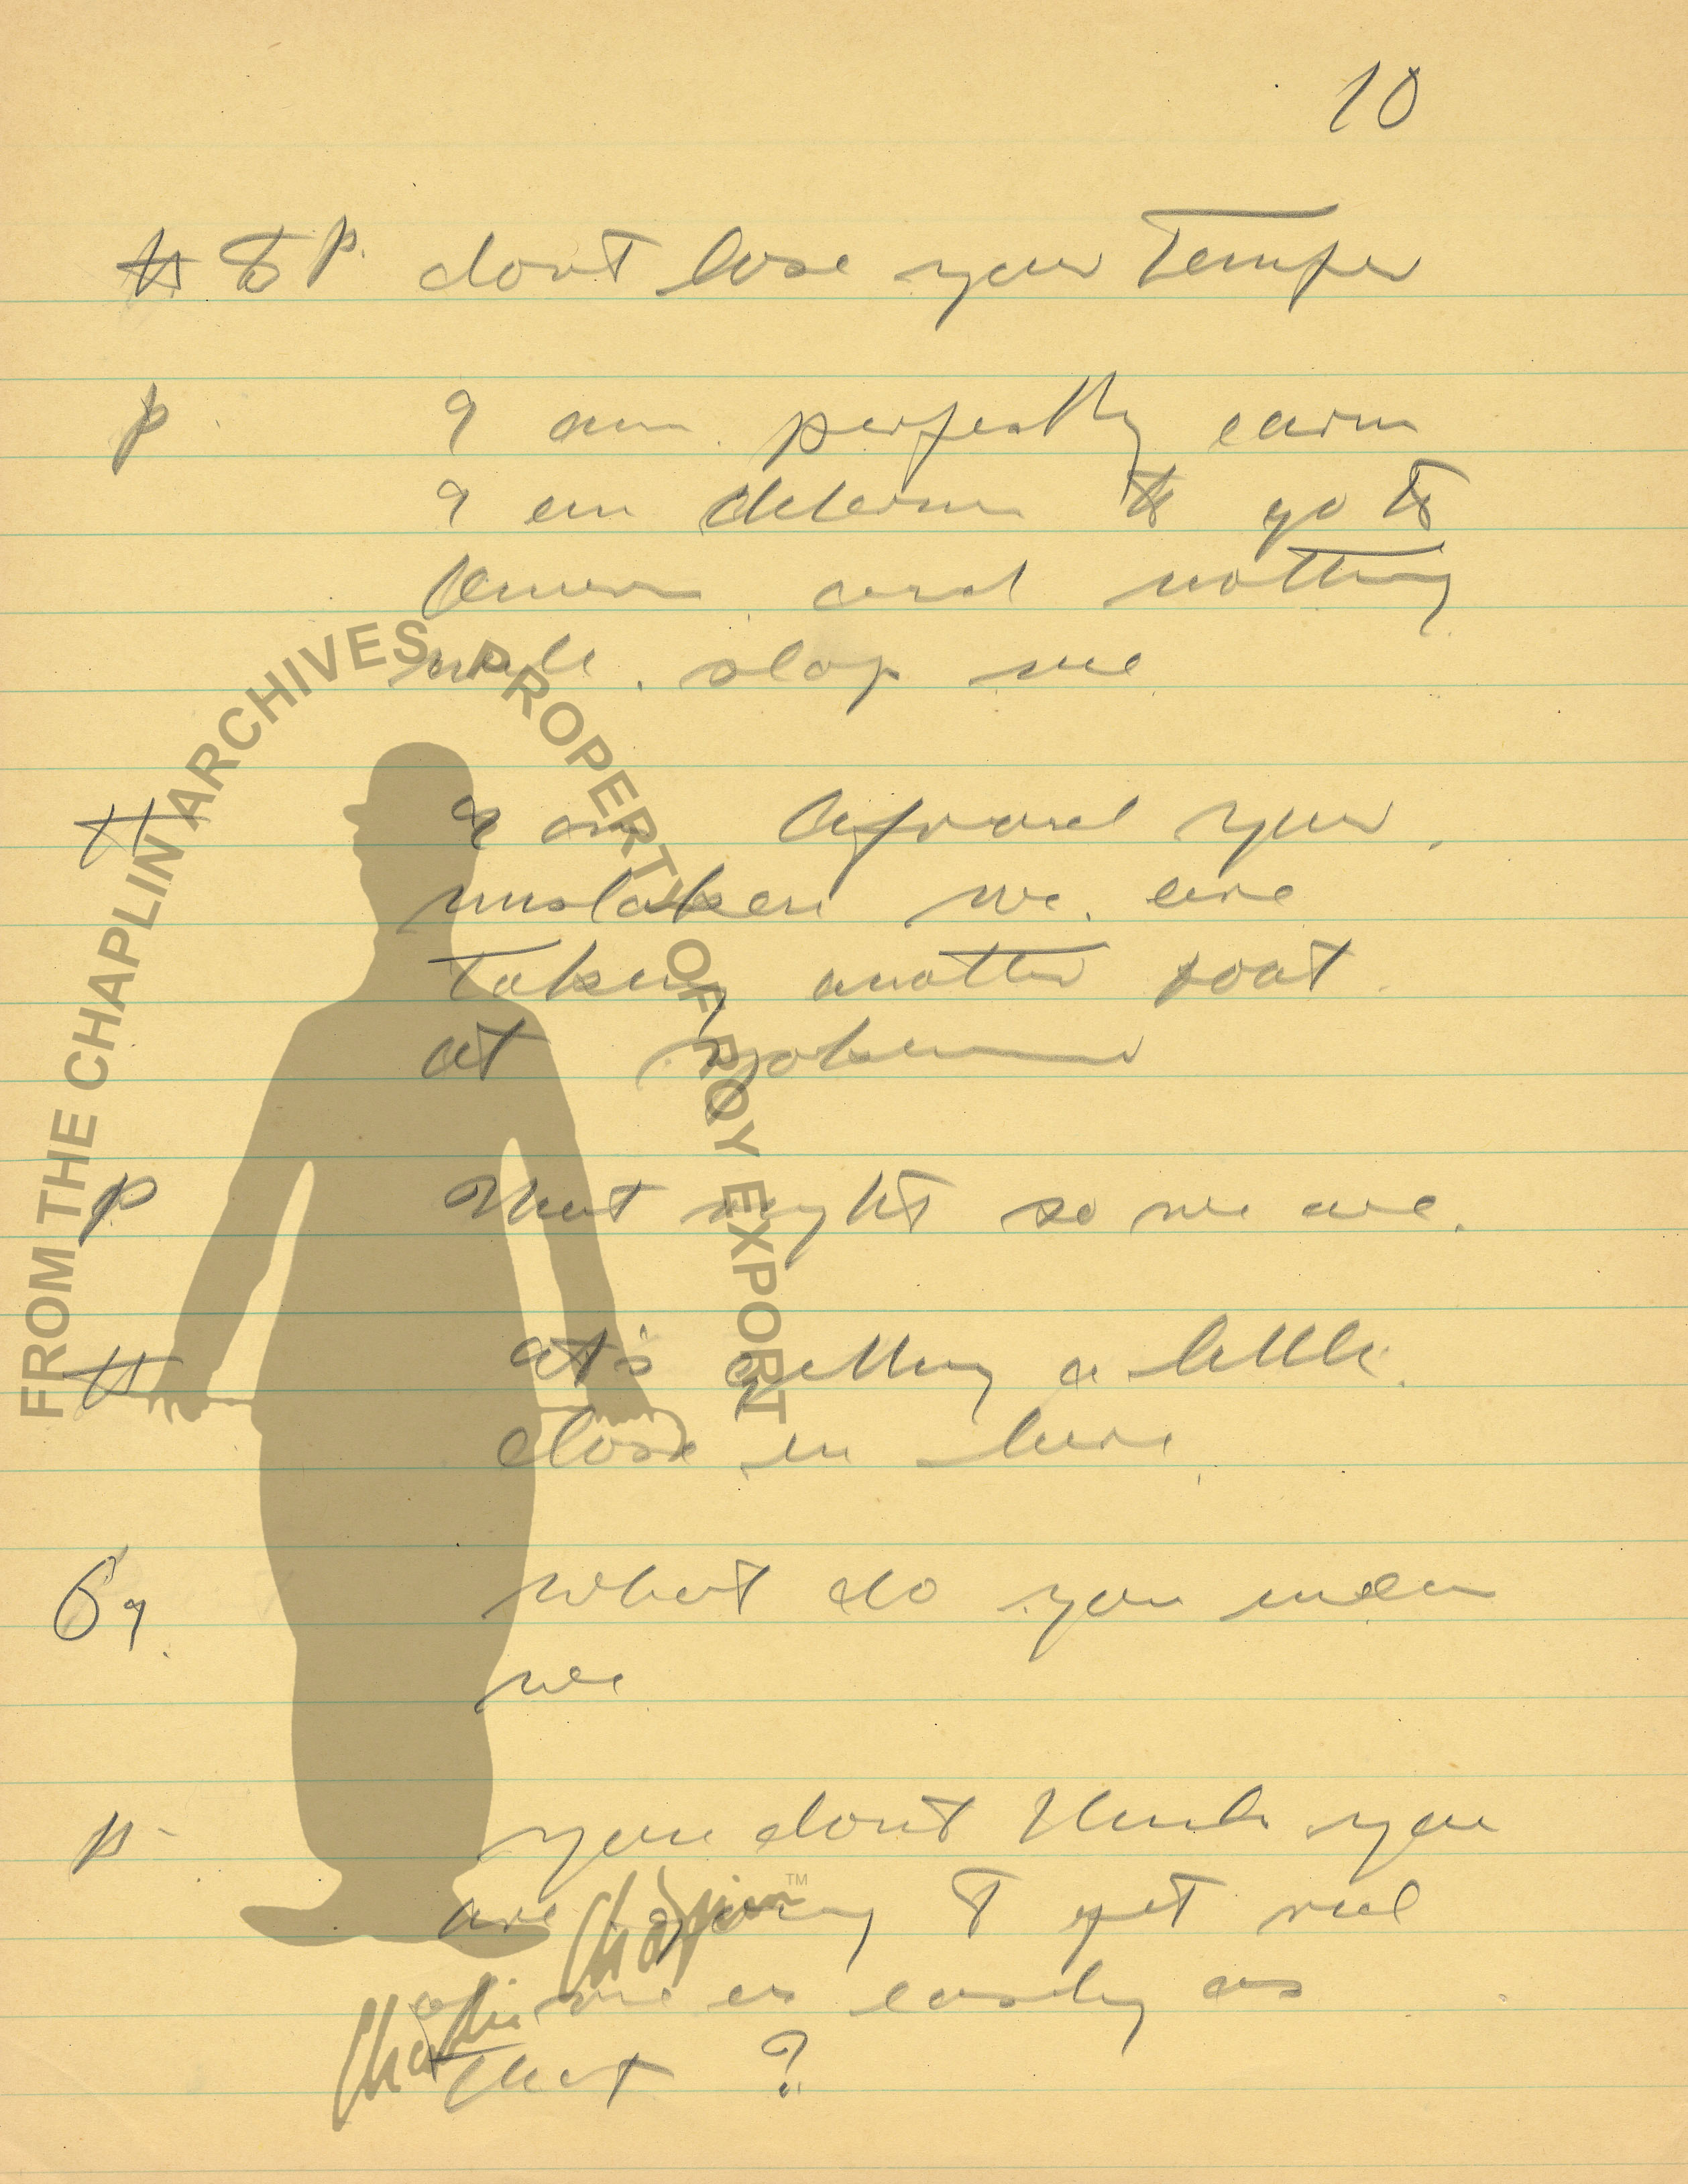 10
H to P. dont lose your Temper
P. I am perfectly carm
I am determ to go to
and nothing
will stop me
H I am afraud you
mistaken we are
Taking another boat
at Yokama
P That right so we are.
H It's getting a little
close in here
G. what do you mean
we
P- you dont think you
are going T get rid
of me as easily as
That ?
FROM THE CHAPLIN ARCHIVES, PROPERTY OF ROY EXPORT
Charlie Chaplin ™